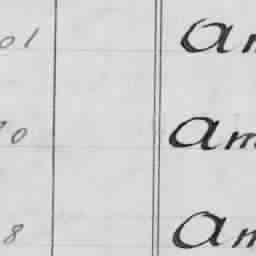 01 An
70 Am
8 Am